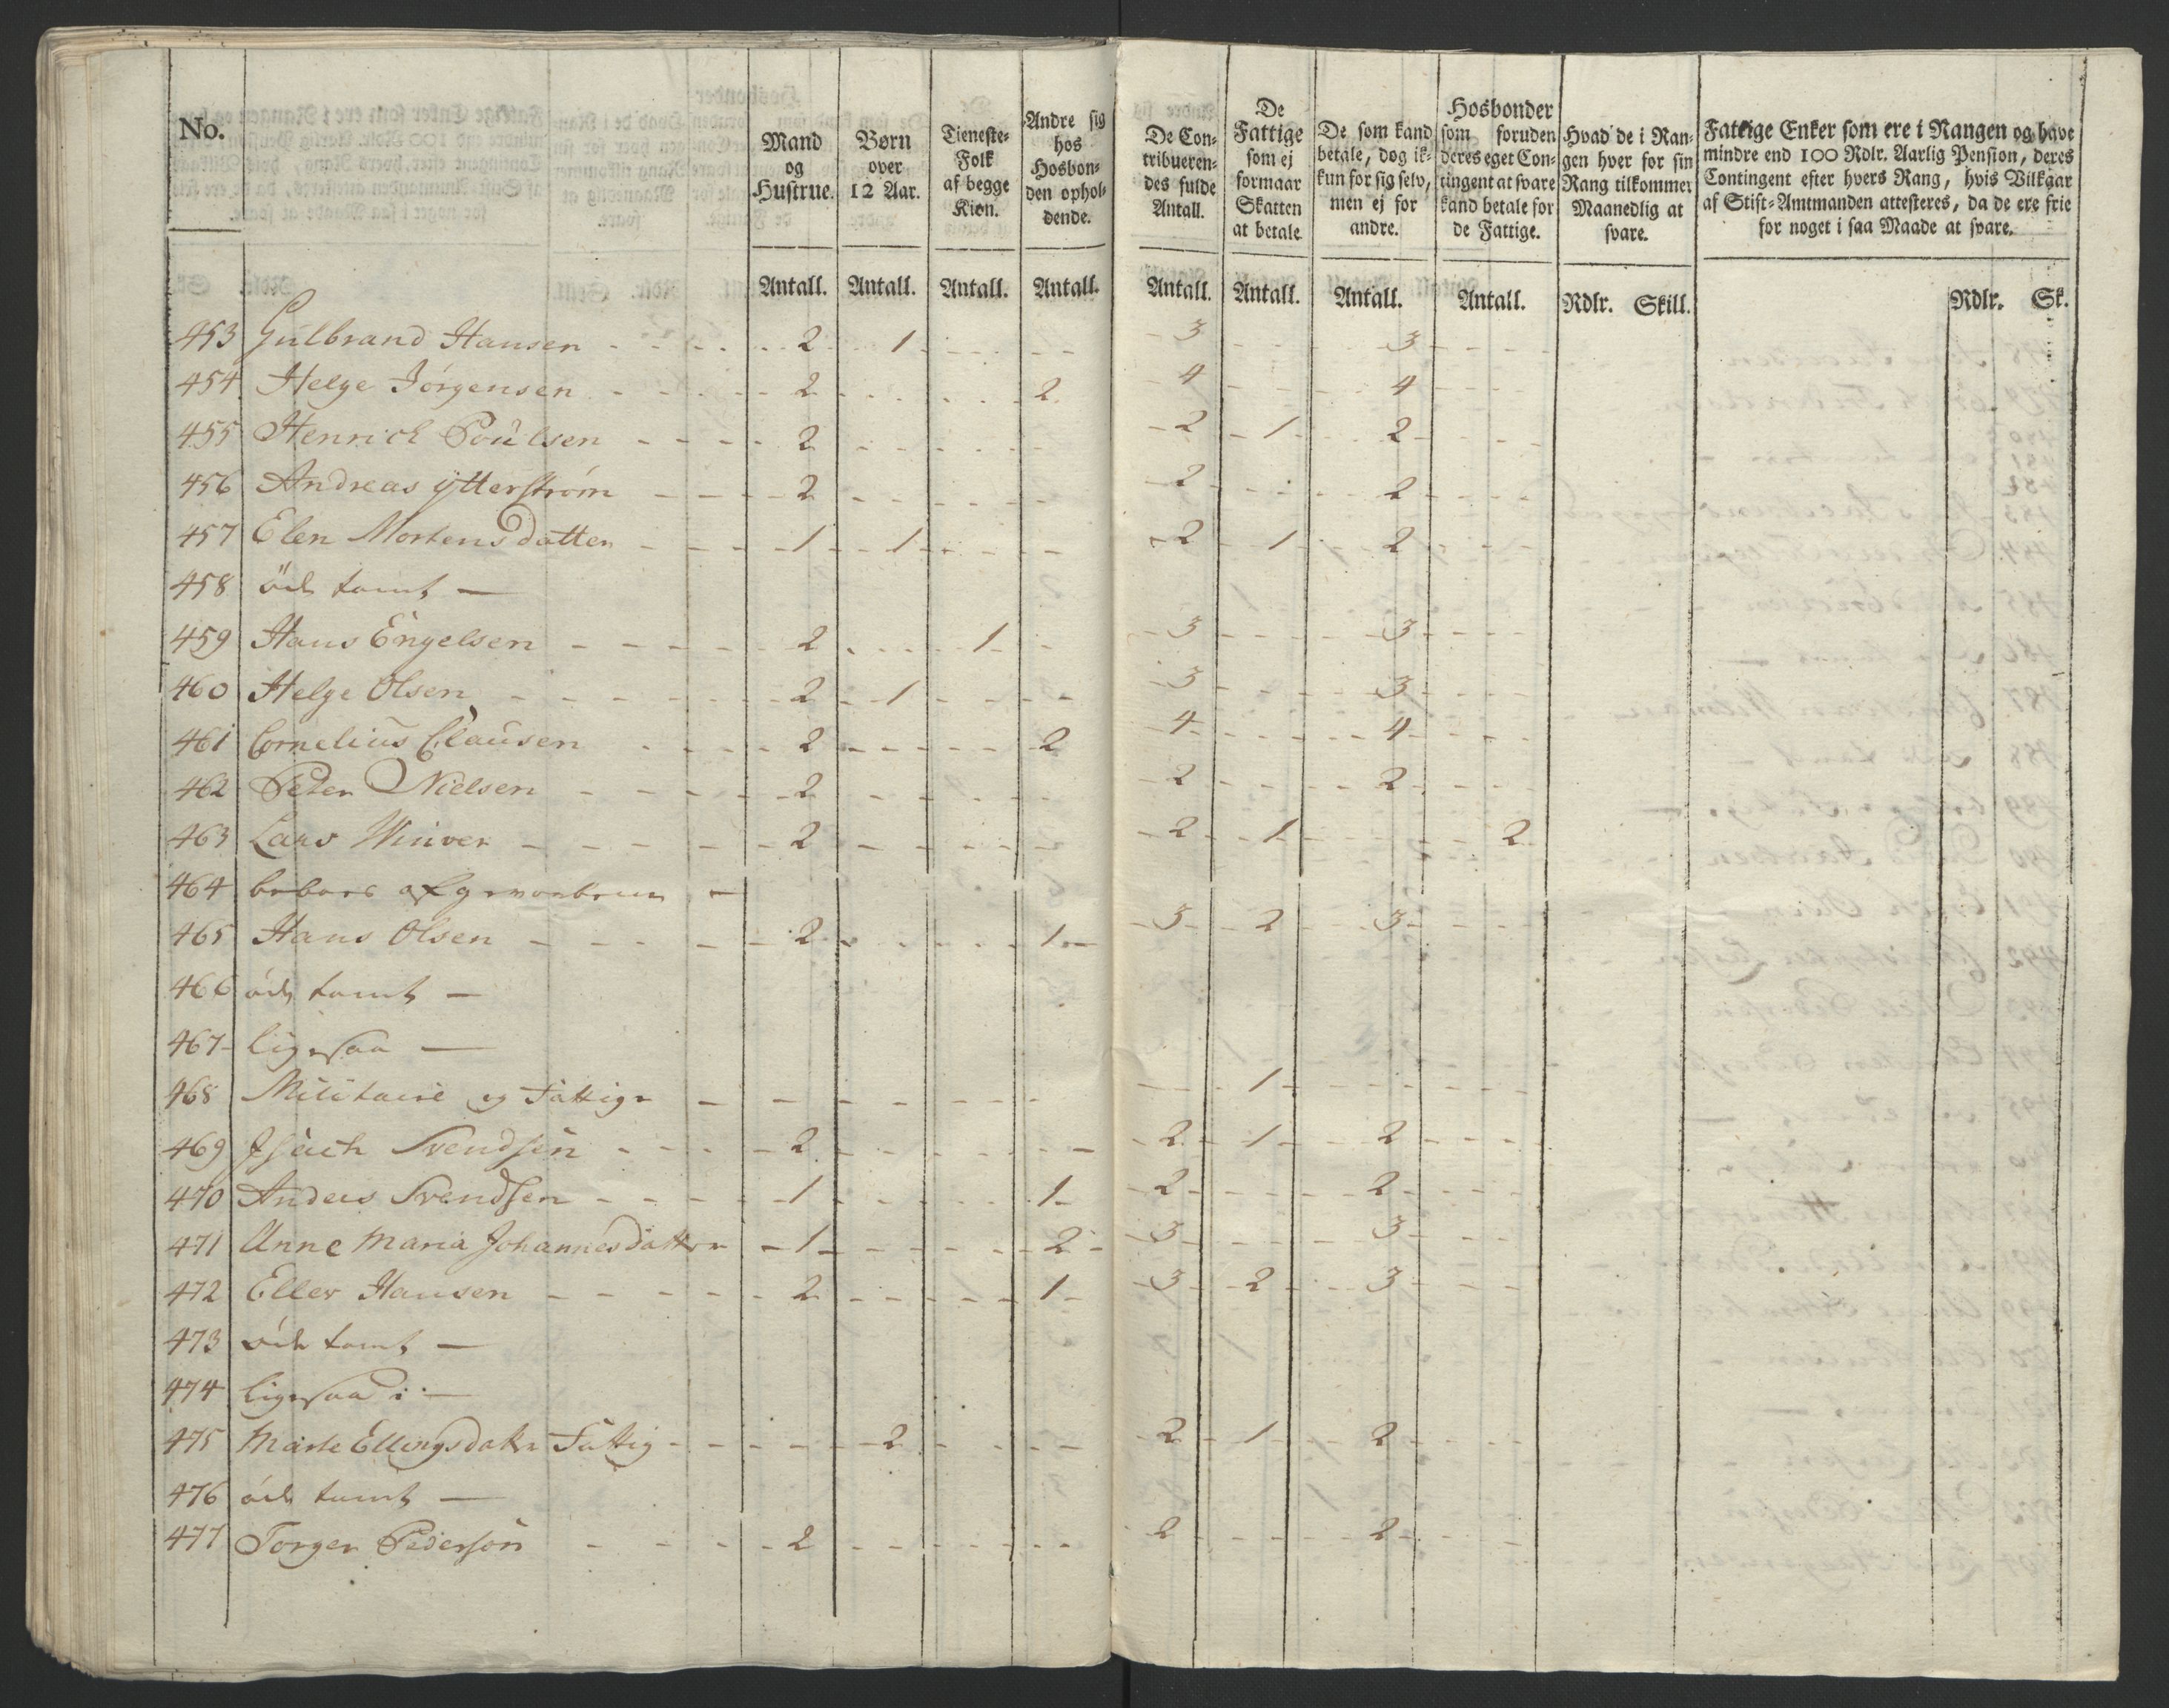 No.
Mand og Hustrue.
Børn over 12 Aar.
Tieneste-Folk af begge Kiøn.
Andre sig hos Hosbonden opholdende.
De Contribuerendes fulde Antall.
De Fattige som ej formaar Skatten at betale
De som kand betale, dog ikkun for sig selv, men ej for andre.
Hosbonder som foruden deres eget Contingent at svare kand betale for de Fattige.
Hvad de i Rangen hver for sin Rang tilkommer Maanedlig at svare.
Fattige Enker som ere i Rangen og have mindre end 100 Rdlr. Aarlig Pension, deres Contingent efter hvers Rang, hvis Vilkaar af Stift-Amtmanden attesteres, da de ere frie for noget i saa Maade at svare.
Antall. Antall. Antall. Antall. Antall. Antall. Antall. Antall. Rdlr. Skill. Rdlr. Sk.
453 Gulbrand Hansen - - 2 1 - - 3 - 3 -
454 Helge Jörgensen - - 2 - - 2 4 - 4 -
455 Henrich Poulsen - - 2 - - - 2 1 2 -
456 Andreas ÿtterström - - 2 - - - 2 - 2 -
457 Elen Mortensdatter - - 1 1 - - 2 1 2 -
458 öde tomt —
459 Hans Engelsen - - 2 - 1 - 3 - 3 -
460 Helge Olsen - - 2 1 - - 3 - 3 -
461 Cornelius Clausen - - 2 - - 2 4 - 4 -
462 Peter Nielsen - - 2 - - - 2 - 2 -
463 Lars - - 2 - - - 2 1 - 2
464 beboes af —
465 Hans Olsen - - 2 - - 1 3 2 3 -
466 öde tomt —
467 ligesaa —
468 Militaire og Fattige - - - - - - 1 - -
469 Isach Svendsen - - 2 - - - 2 1 2 -
470 Anders Svendsen - - 1 - - 1 2 - 2 -
471 Anne Maria Johannesdatter - 1 - - 2 3 - 3 -
472 Ellev Hansen - - 2 - - 1 3 2 3 -
473 öde tomt —
474 ligesaa —
475 Marte Ellingsdatter Fattig - - 2 - - 2 1 2 -
476 öde tomt —
477 Torger Pedersön - - 2 - - - 2 - 2 -